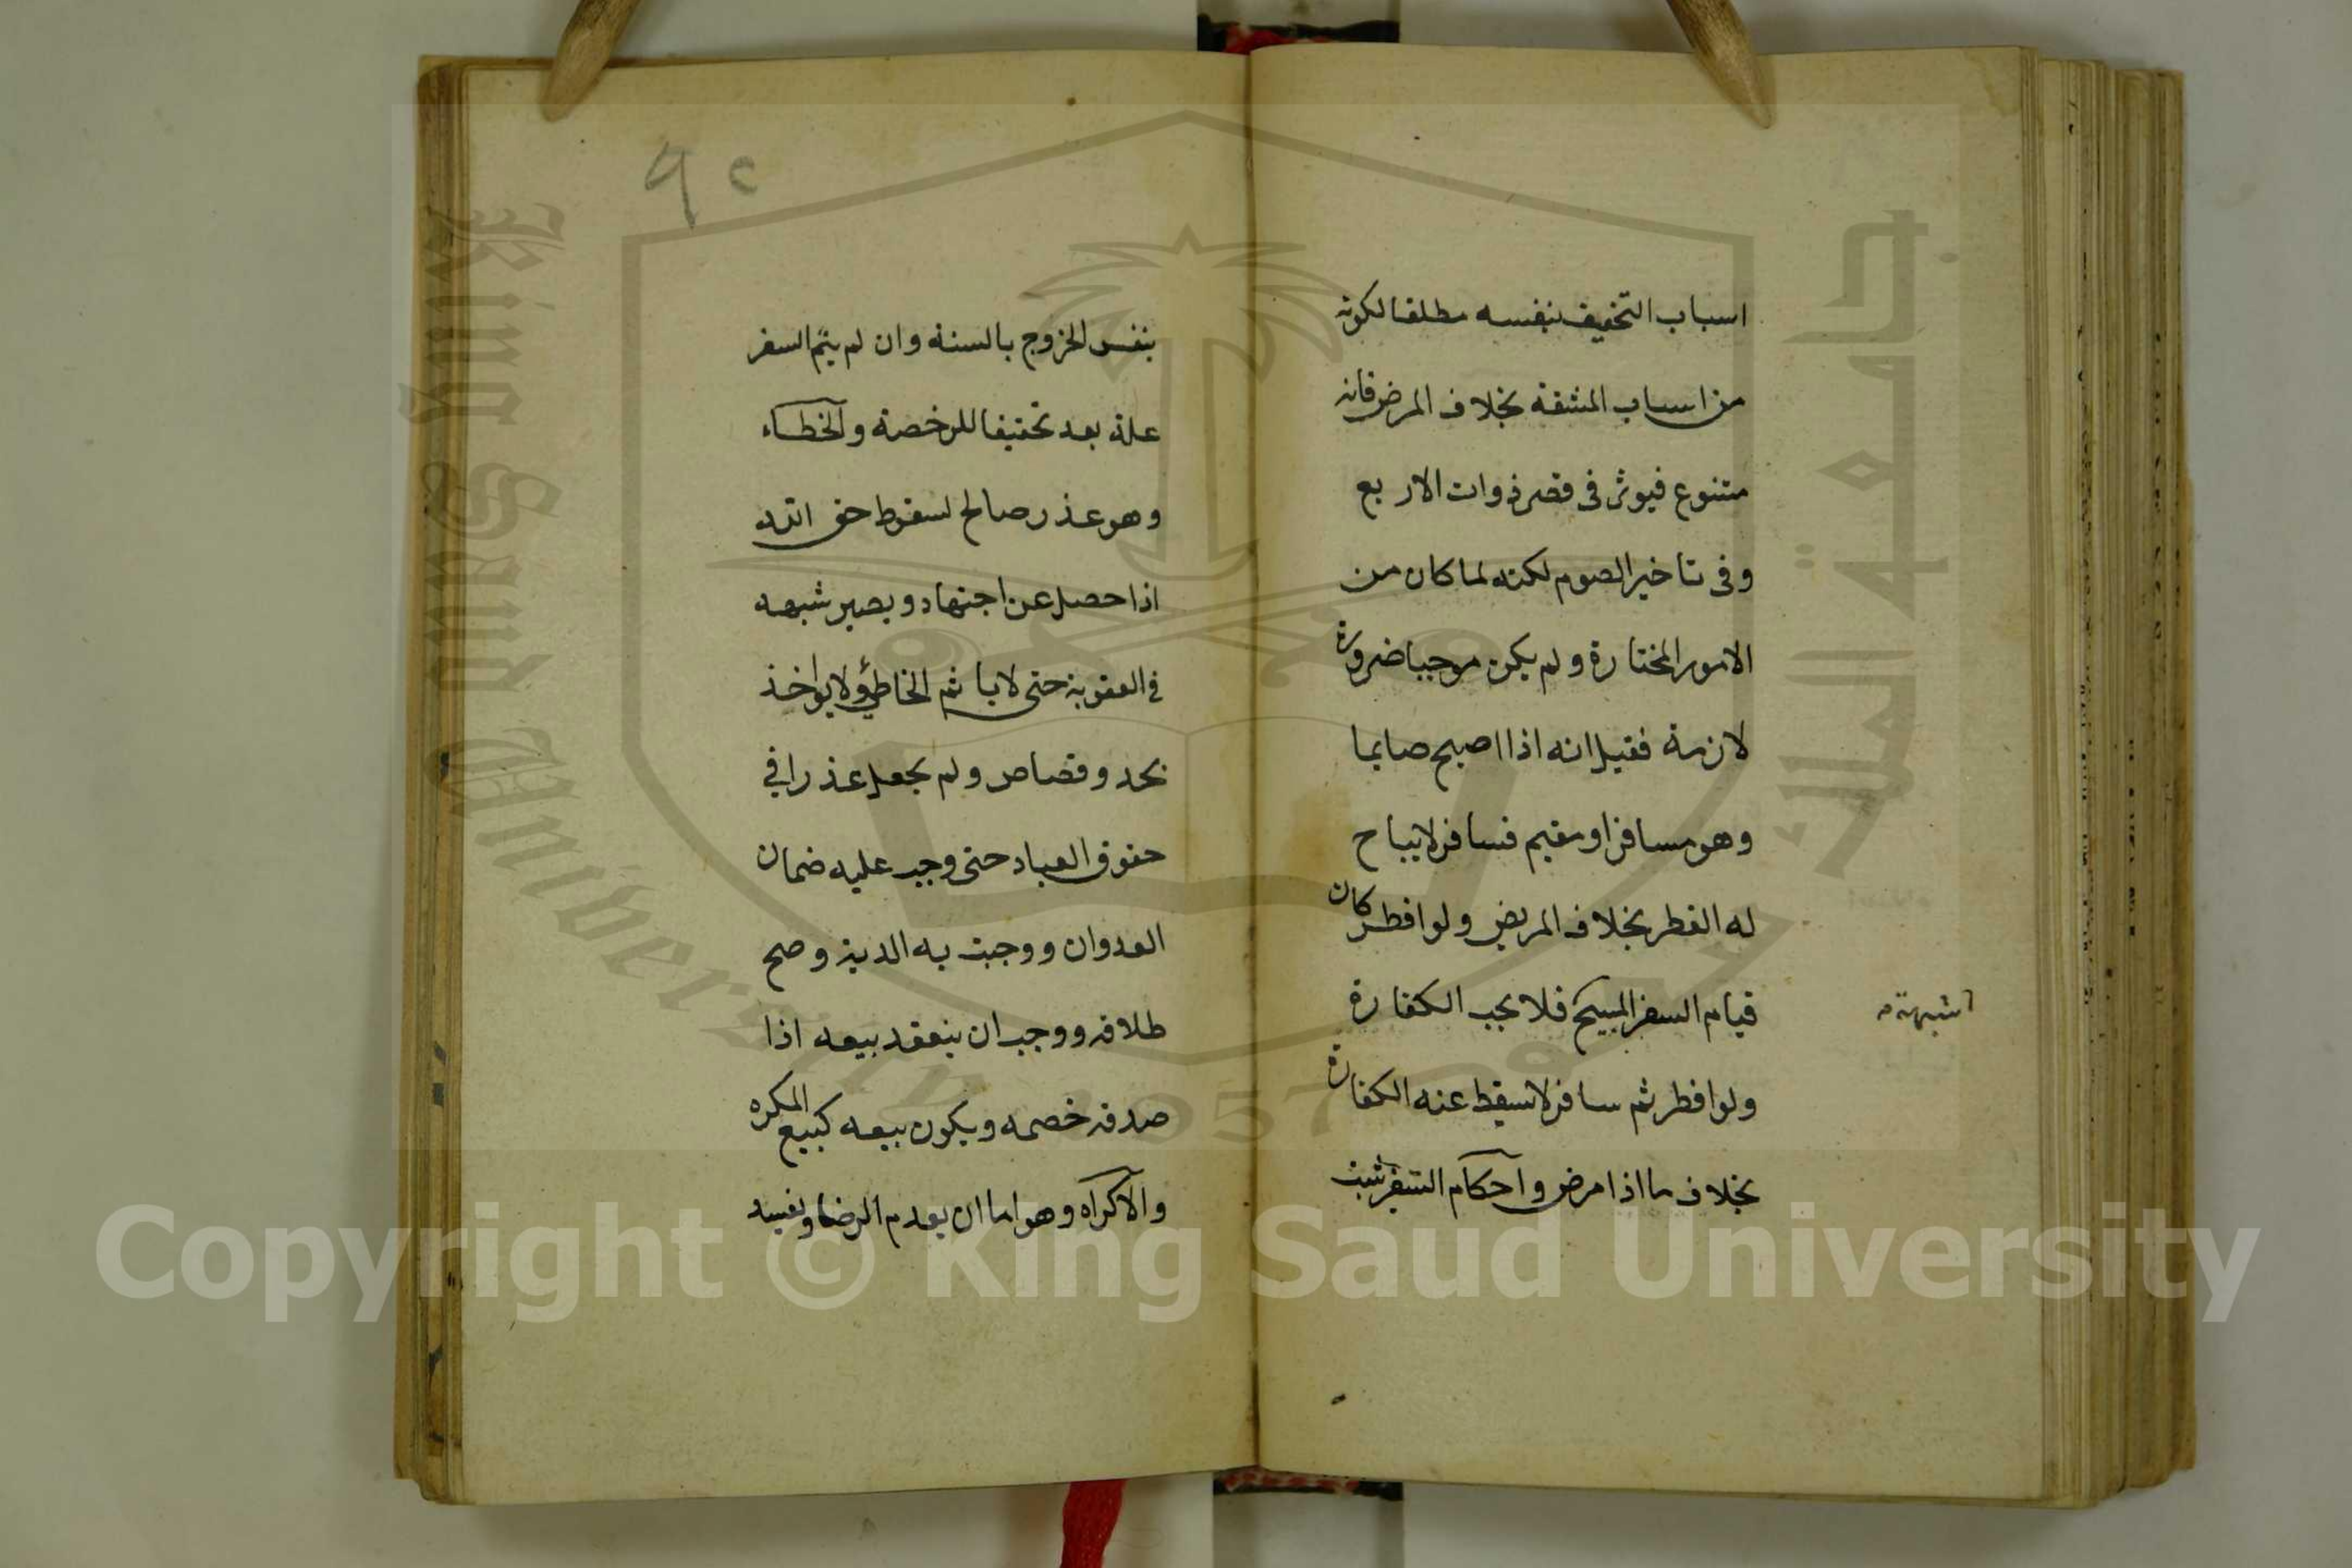 اسباب التخفيف بنفسه مطلقا لكونه
من اسباب المشقة بخلاف المرض فانه
متنوع فيوثر فى قصر ذوات الاربع
وفى تاخير الصوم لكنه لما كان من
الامور المختارة ولم يكن موجبا ضرورة
لازمة فقيل انه اذا اصبح صايما
وهو مسافر او مقيم فسافر لا يباح
له الفطر بخلاف المريض ولو افطر كان
قيام السفر المبيح فلا يجب الكفارة
شبهة
ولو افطر ثم سافر لا تسقط عنه الكفارة
بخلاف ما اذا مرض واحكام السفر تثبت
٩٢
بنفس الخروج بالسنة وان لم يتم السفر
علة بعد تحقيقا للرخصة والخطاء
وهو عذر صالح لسقوط حق الله
اذا حصل عن اجتهاد ويصير شبهه
فى العقوبة حتى لا ياثم الخاطئ ولا يواخذ
بحد وقصاص ولم يجعل عذرا في
حقوق العباد حتى وجب عليه ضمان
العدوان ووجبت به الدية وصح
طلاقه ووجب ان ينعقد بيعه اذا
صدقه خصمه ويكون بيعه كبيع المكره
والاكراه وهو اما ان يعدم الرضا ويفسد
جامعة الملك سعود
King Saud University
1957
Copyright © King Saud University